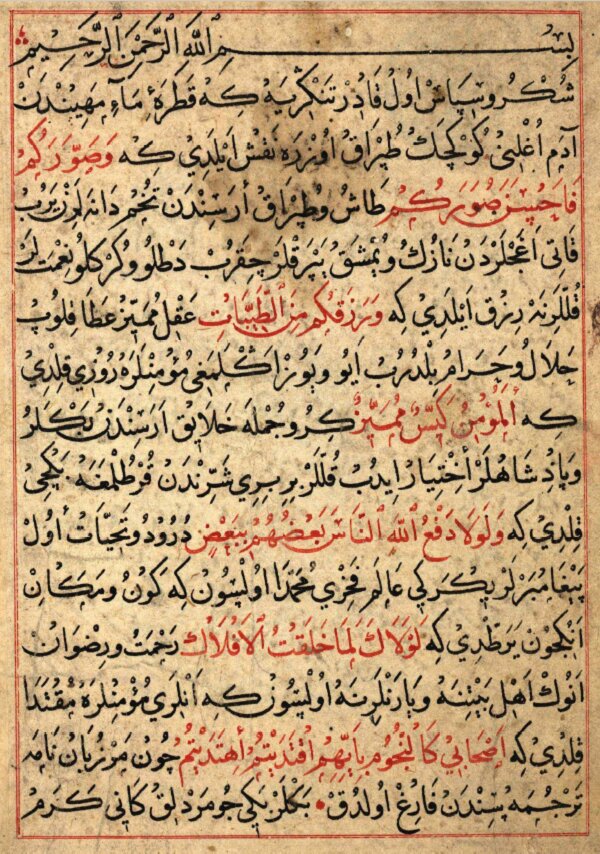 بِسْمِ ٱللهِ ٱلرَّحْمٰنِ ٱلرَّحِيمِ
شُكْرُ و سِپَاسْ اُولْ قَادِرْ تَنْكْرِيَه كِه قَطْرَهٔ مَاۤءِ مَهِينْدَنْ
آدَمِ اُغْلَنِنْ كُوكْچَكْ طُپْرَاقْ اُوزْرَه نَقْشْ اَيْلَدِي كِه وَصَوَّرَكُمْ
فَاَحْسَنَ صُوَرَكُمْ طَاشْ وُ طُپْرَاقْ اَرَسِنْدَنْ تُخُمْ دَانَه لَرِنْ يَرُبْ
قَاتِي اَغَجْلَرْدَنْ نَازُكْ وُ يُمْشَقْ يَپْرَقْلَرْ چِقَرُبْ دَطْلُو وُ كَرَكْلُو نِعْمَتْ لَرْ
قُلْلَرِنَه رِزْقْ اَيْلَدِي كِه وَرَزَقَكُمْ مِنَ ٱلطَّيِّبَاتِ عَقْلِ مُمَيِّزْ عَطَا قِلُوبْ
حَلَالْ وُ حَرَامْ بِلْدُرُبْ اَيُو وُ يَوُوزْ اَكْلَمَغِي مُؤْمِنْلَرَه رُوزِي قِلْدِي
كِه اَلْمُؤْمِنُ كَيِّسٌ مُمَيِّزٌ كِرُو جُمْلَه خَلَايِقْ اَرَسِنْدَنْ بَكْلَرْ
وُ پَاذِشَاهْلَرْ اِخْتِيَارْ اِيدُبْ قُلْلَرِ بِرْ بِرِي شَرِّنْدَنْ قُرْطُلْمَغَه بَكْجِي
قِلْدِي كِه وَلَوْلَا دَفْعُ ٱللهِ ٱلنَّاسَ بَعْضَهُمْ بِبَعْضٍ دُرُودُ و تَحِيَّاتْ اُولْ
پَيْغَامْبَرْلَرْ يِكْرَكِي عَالَمْ فَخْرِي مُحَمَّدَا اُولْسُونْ كِه كَوْنُ و مَكَانْ
اَنِكْچُونْ يَرَطْدِي كِه لَوْلَاكَ لَمَا خَلَقْتُ ٱلْاَفْلَاكَ رَحْمَتْ و رِضْوَانْ
اَنُوكْ اَهْلِ بَيْتِنَه وَ يَارَنْلَرِنَه اُولْسُونْ كِه اَنْلَرِي مُؤْمِنْلَرَه مُقْتَدَا
قِلْدِي كِه اَصْحَابِي كَالنُّجُومِ بِاَيِّهِمُ اقْتَدَيْتُمْ اهْتَدَيْتُمْ چُونْ مَرْزُبَانْ نَامَه
تَرْجَمَه سِنْدَنْ فَارِغْ اُولْدُقْ • بَكْلَرْ يِكِي جُومَرْدْلِقْ كَانِي كَرَمْ